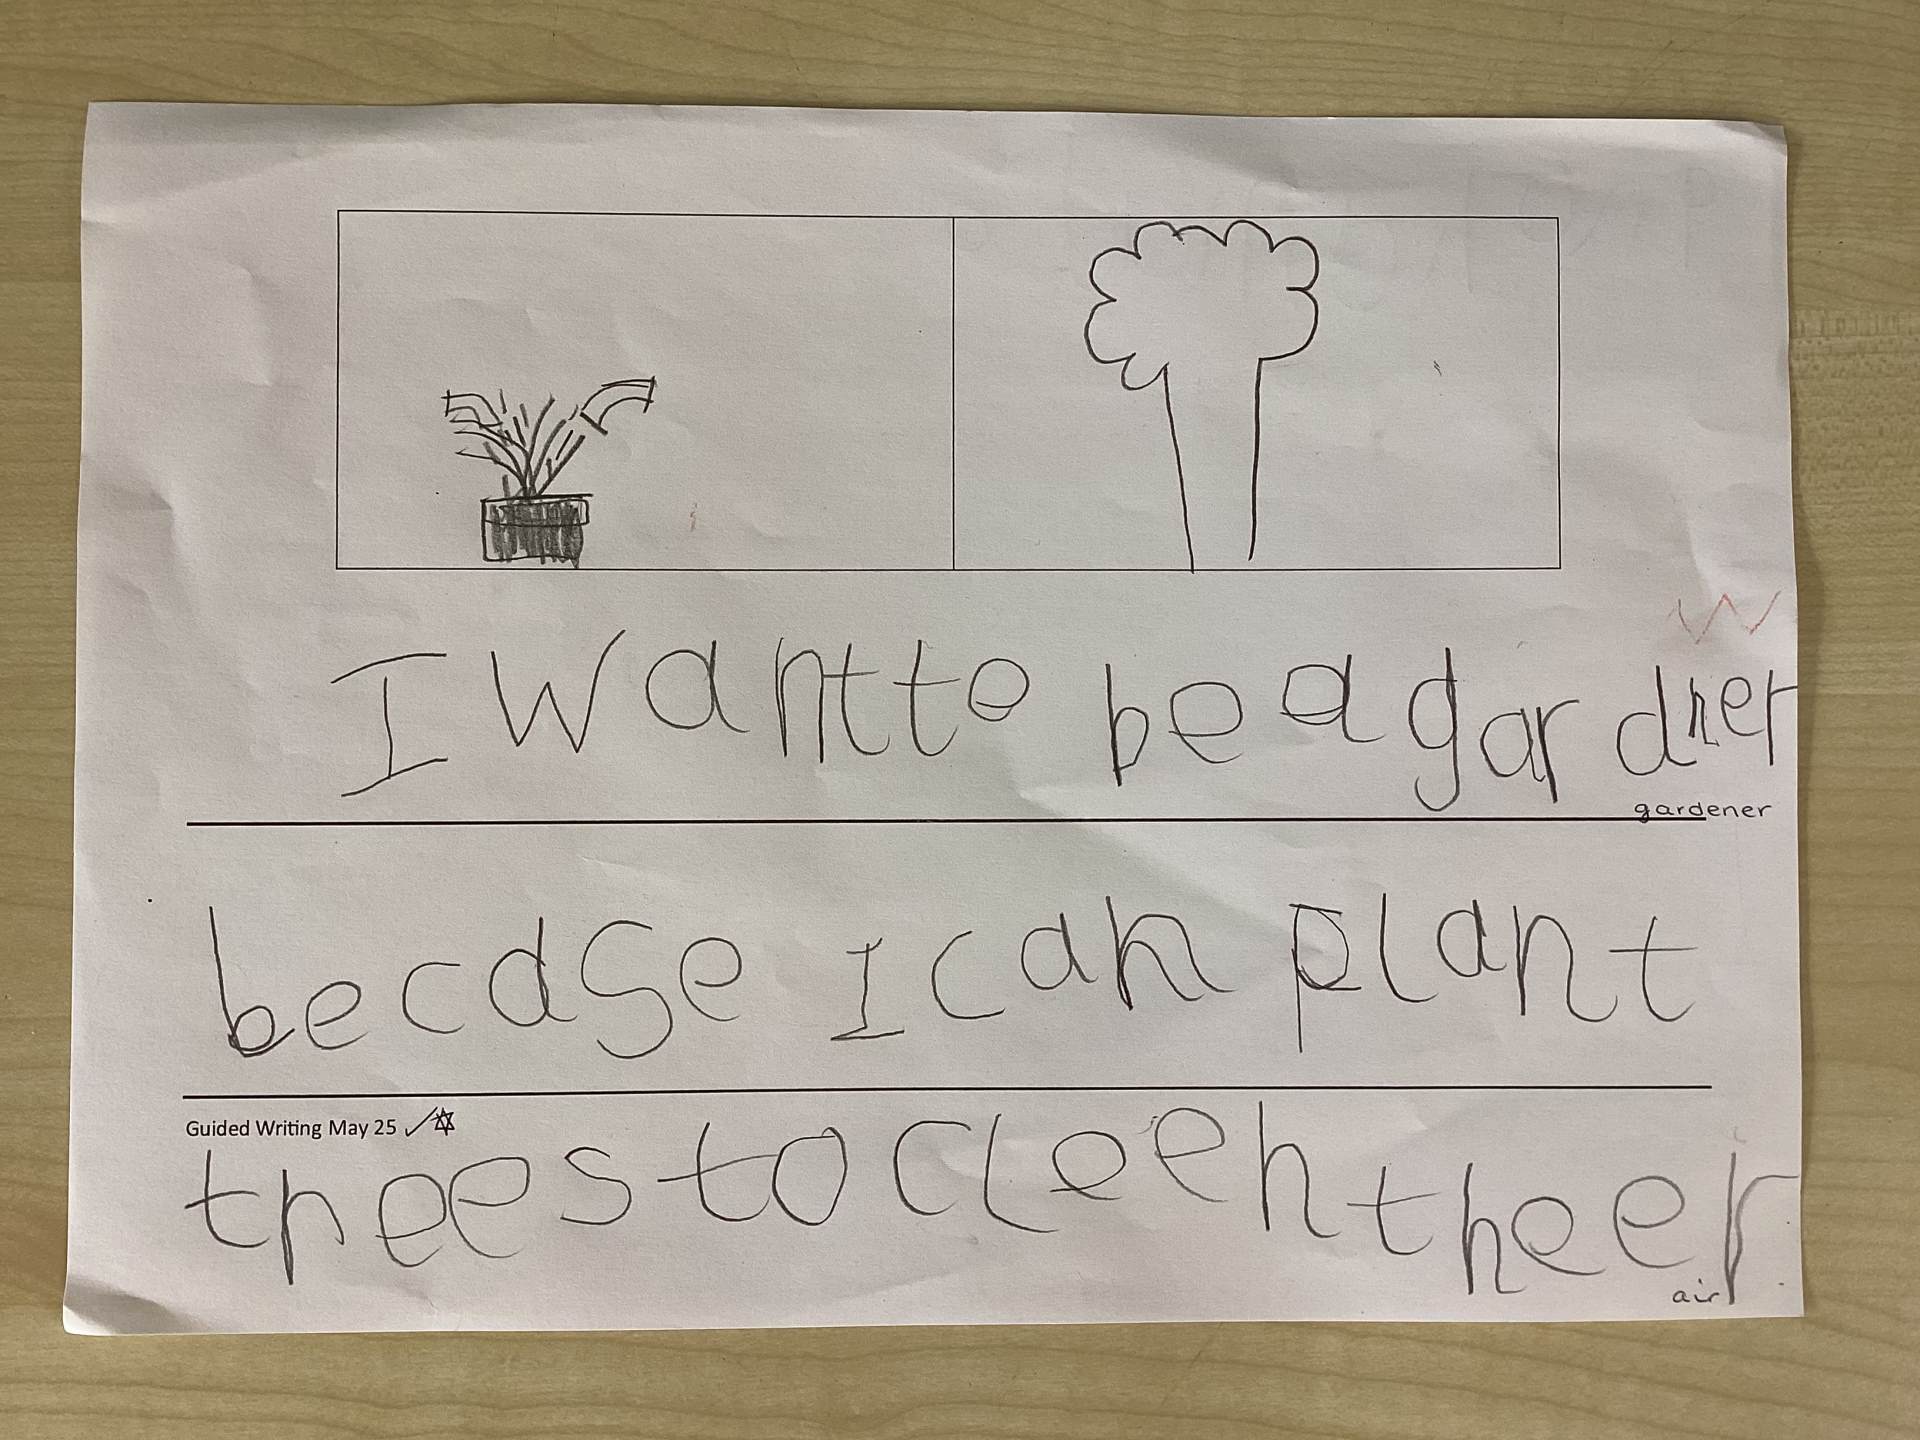 I want to be a gardner
gardener
becase I can plant
Guided Writing May 25
trees to cleen the er
air